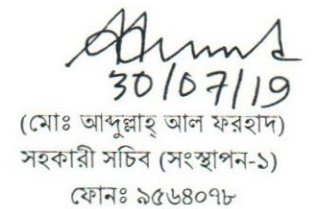 30/07/19
(মোঃ আব্দুল্লাহ্ আল ফরহাদ)
সহকারী সচিব (সংস্থাপন-১)
ফোনঃ ৯৫৬৪০৭৮